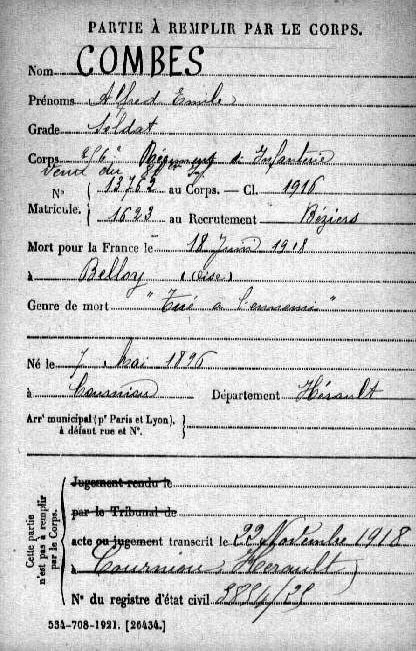 PARTIE À REMPLIR PAR LE CORPS.
Nom COMBES
Prénoms Alfred Emile
Grade Soldat
Corps 256e Régiment d'Infanterie
Venu du
N° 13762 au Corps. — Cl. 1916
Matricule. 1623 au Recrutement Béziers
Mort pour la France le 18 Juin 1918
à Belloy (Oise)
Genre de mort "Tué a l'ennemi"
Né le 7 Mai 1896
à Courniou Département Hérault
Arrt municipal (pr Paris et Lyon).
à défaut rue et N°.
Cette partie n'est pas à remplir par le Corps.
Jugement rendu le
par le Tribunal de
acte ou jugement transcrit le 22 Novembre 1918
à Courniou Herault
N° du registre d'état civil
534-708-1921. [26434.]